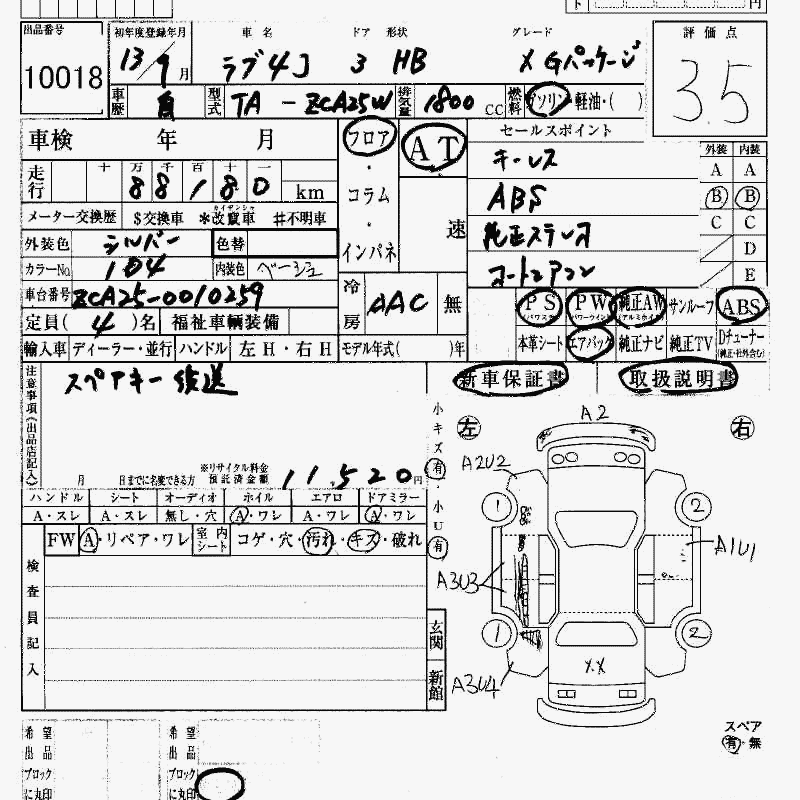 ト 円
出品番号 初年度登録年月 車名 ドア 形状 グレード 評価点
10018 13/9月 ラブ4J 3 HB X Gパッケージ 3.5
車歴 自 型式 TA-ZCA25W 排気量 1800 CC 燃料 ガソリン・軽油・( )
車検 年 月 フロア AT セールスポイント
外装 内装
走行 十 万 千 百 十 一 キーレス A A
88180 km ・コラム ABS B B
メーター交換歴 $交換車 *改竄車(カイザンシャ) #不明車 ・ 速 純正ステレオ C C
外装色 シルバー 色替 インパネ D
カラーNo. 1D4 内装色 ベージュ オートエアコン E
車台番号 ZCA25-0010259 冷房 AAC 無 PS(パワステ) PW(パワーウインド) 純正AW(アルミホイル) サンルーフ ABS
定員( 4 )名 福祉車輌装備 本革シート エアバック 純正ナビ 純正TV Dチューナー(純正・社外含む)
輸入車 ディーラー・並行 ハンドル 左H・右H モデル年式( )年
注意事項(出品店記入) スペアキー後送 新車保証書 取扱説明書
小キズ 有・小U 有
左 A2 右
A2U2
月 日までに名変できる方 ※リサイクル料金預託済金額 11,520円
ハンドル シート オーディオ ホイル エアロ ドアミラー
A・スレ A・スレ 無し・穴 A・ワレ A・ワレ A・ワレ
1 2
FW A・リペア・ワレ 室内シート コゲ・穴・汚れ・キズ・破れ
A1U1
検査員記入 A3U3
玄関 1 2
新館 A3U4 X.X
スペア
有・無
希望出品ブロックに丸印 希望出品ブロックに丸印